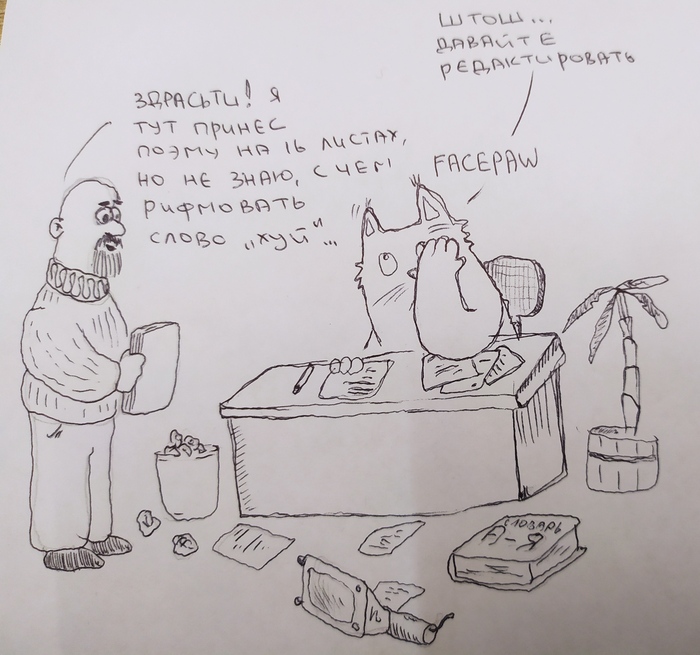 ЗДРАСЬТИ! Я
ТУТ ПРИНЕС
ПОЭМУ НА 16 ЛИСТАХ,
НО НЕ ЗНАЮ, С ЧЕМ
РИФМОВАТЬ
СЛОВО „ХУЙ"...
ШТОШ...
ДАВАЙТЕ
РЕДАКТИРОВАТЬ
FACEPAW
СЛОВАРЬ
А-Я